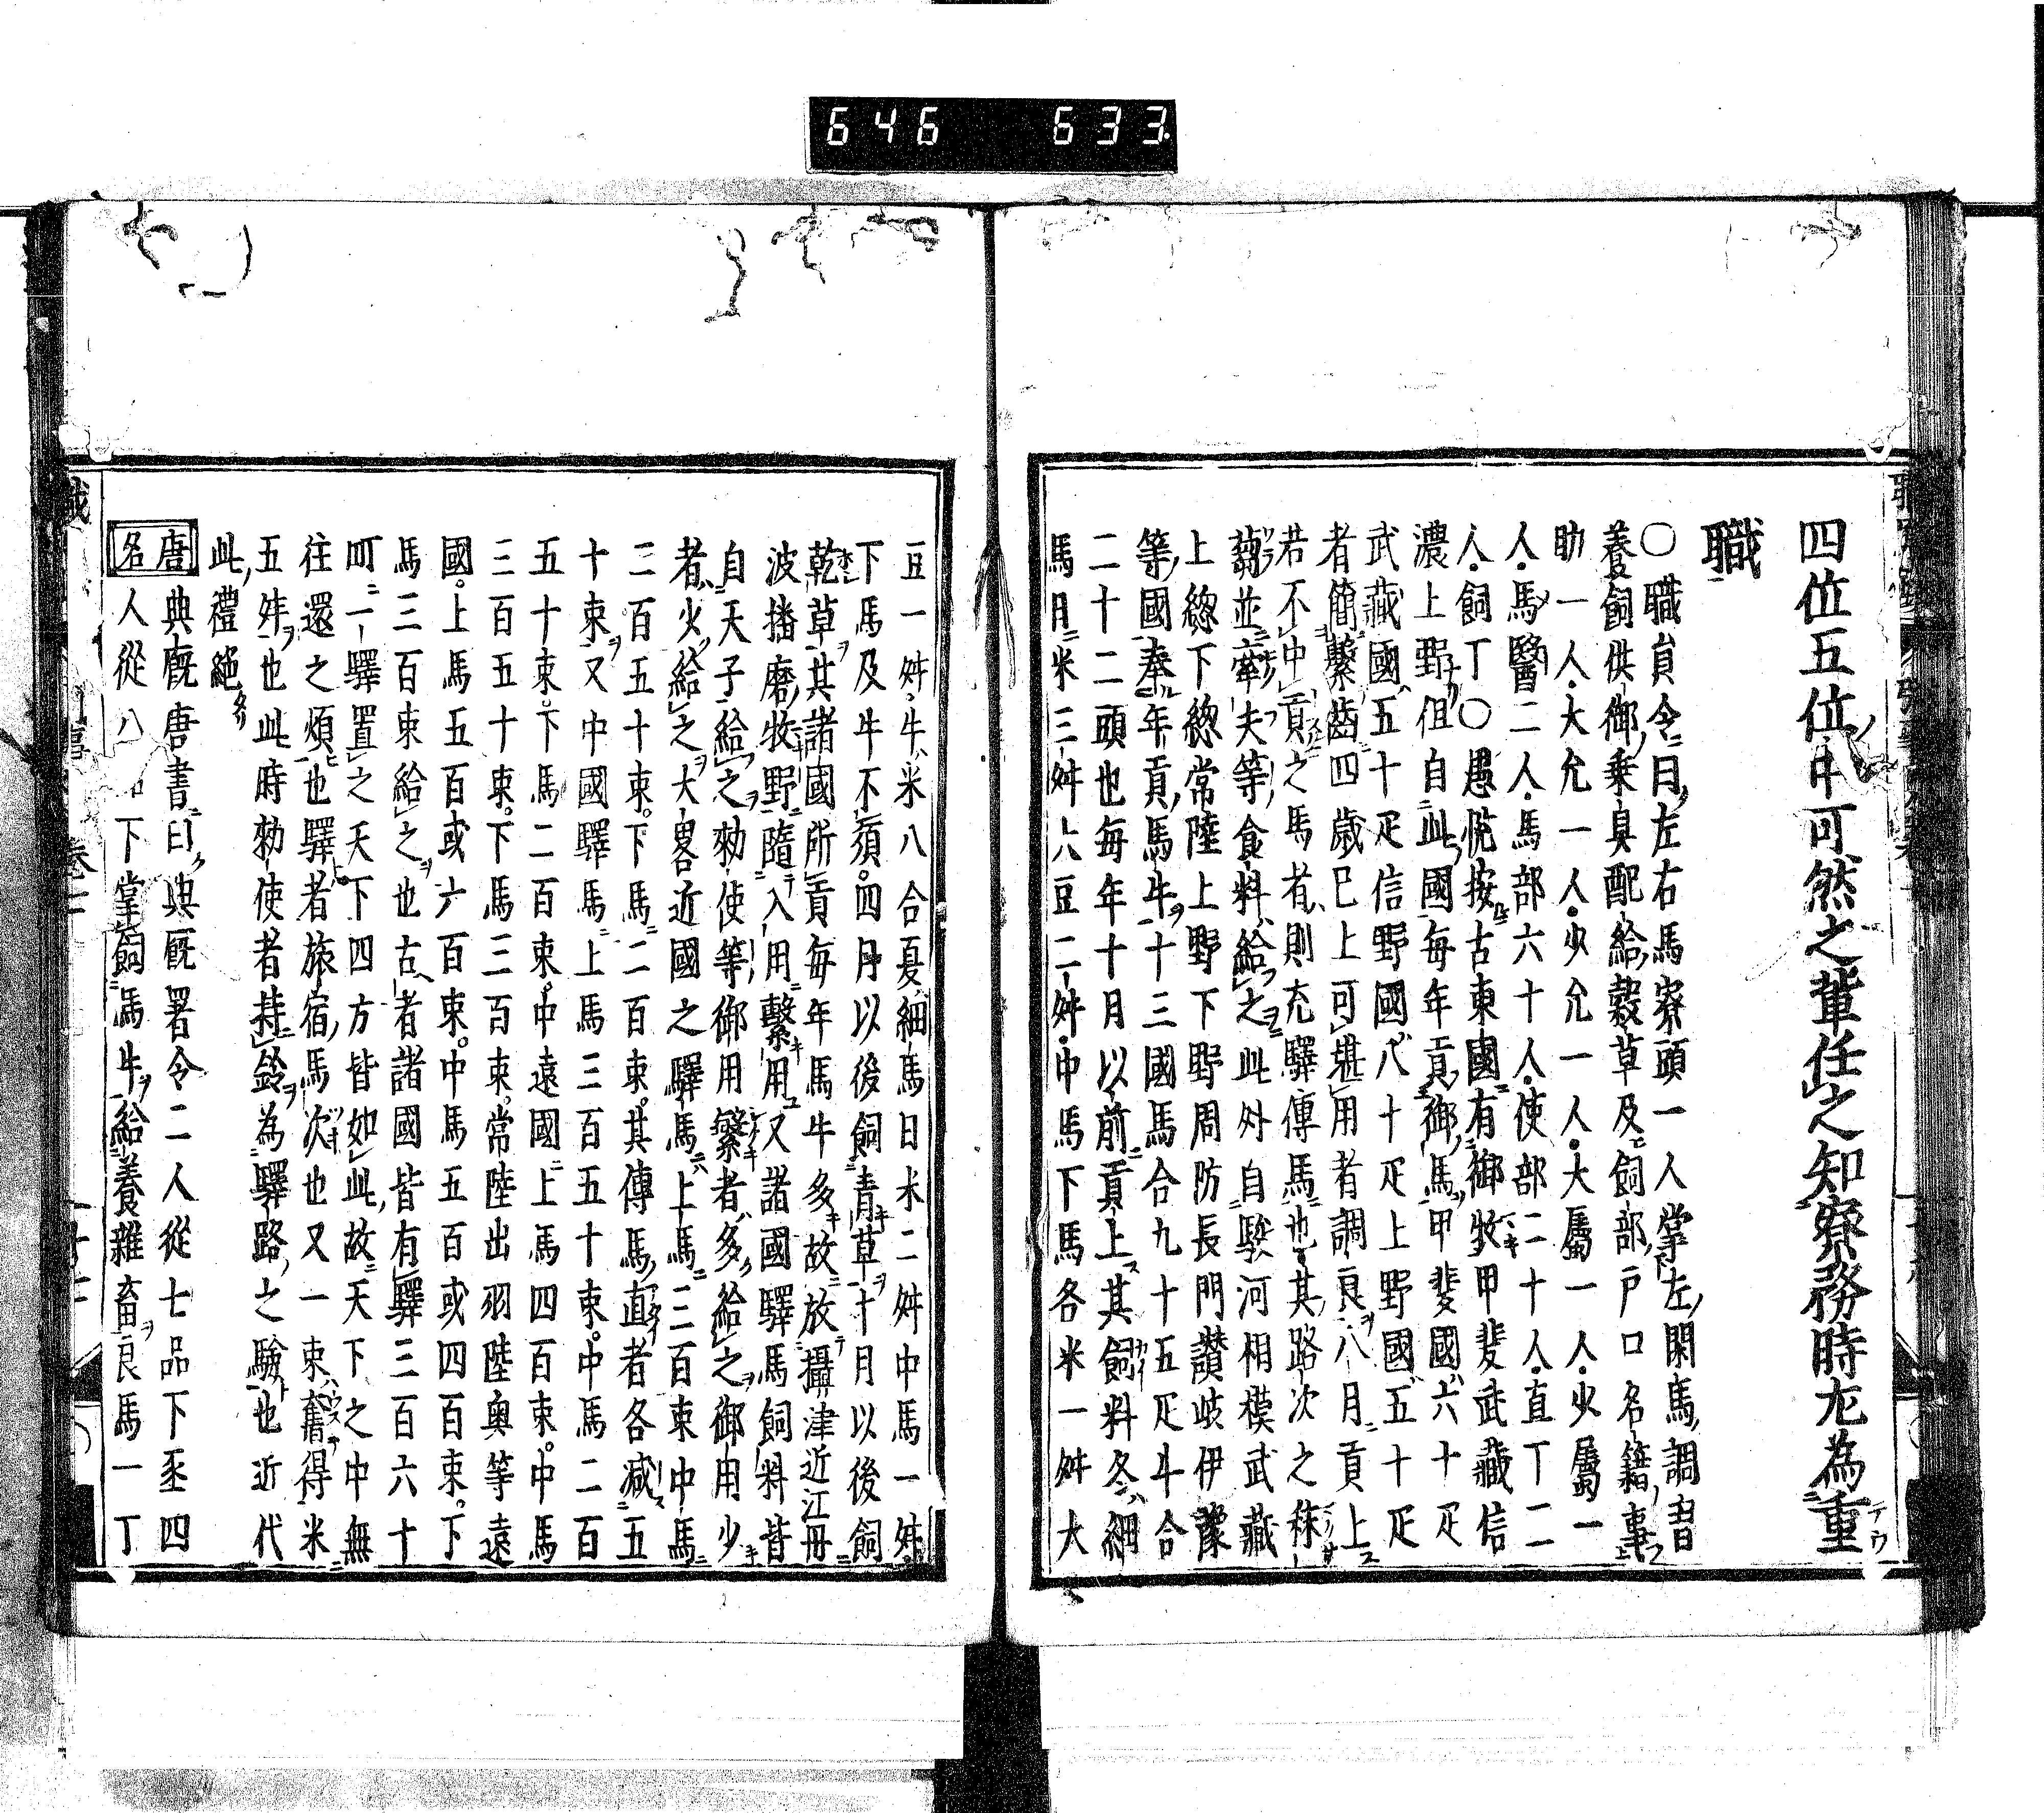 646 633
四位五位ノ中可然之輩任之知寮務時尤為重
職
〇職員令曰左右馬寮頭一人掌左閑馬調習
養飼供御乗具配給穀草及飼部戸口名籍事
助一人大允一人少允一人大属一人少属一
人馬醫二人馬部六十人使部二十人直丁二
人飼丁〇愚㤀按古東國有御牧甲斐武藏信
濃上野但自此國毎年貢御馬甲斐國六十疋
武藏國五十疋信野國八十疋上野國五十疋
者簡繋齒四歳巳上可堪用者調良八月貢上
若不中貢之馬者則充驛傳馬也其路次之秣
蒭並牽夫等食料給之此外自駿河相模武藏
上総下総常陸上野下野周防長門讃岐伊豫
等國奉年貢馬牛十三國馬合九十五疋牛合
二十二頭也毎年十月以前貢上其飼料冬細
馬日米三舛大豆二舛中馬下馬各米一舛大
豆一舛牛米八合夏細馬日米二舛中馬一舛
下馬及牛不須四月以後飼青草十月以後飼
乾草其諸國所貢毎年馬牛多故放攝津近江丹
波播磨牧野隨入用繋用又諸國驛馬飼料皆
自天子給之勅使等御用繁者多給之御用少
者火給之大畧近國之驛馬上馬三百束中馬
二百五十束下馬二百束其傳馬直者各减五
十束又中國驛馬上馬三百五十束中馬二百
五十束下馬二百束中遠國上馬四百束中馬
三百五十束下馬三百束常陸出羽陸奥等遠
國上馬五百或六百束中馬五百或四百束下
馬三百束給之也古者諸國皆有驛三百六十
町一驛置之天下四方皆如此故天下之中無
往還之煩也驛者旅宿馬次也又一束舊得米
五舛也此時勅使者持鈴為驛路之驗也近代
此禮絶
唐名
典廐唐書曰典厩署令二人從七品下丞四
人從八品下掌飼馬牛給養雜畜良馬一丁